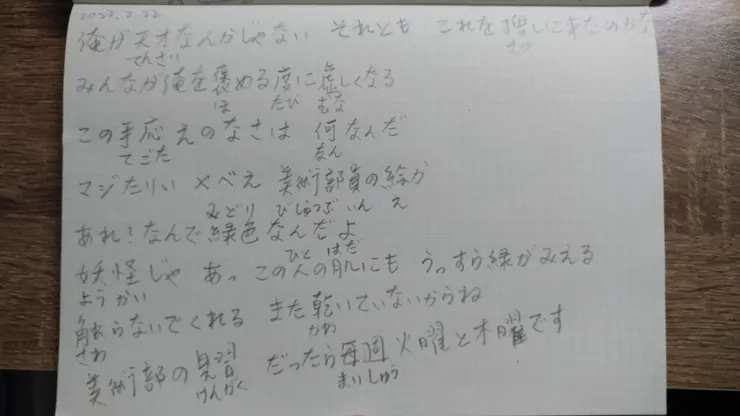 2022.2.22
俺が天才なんかじゃない それとも これを捜しに来たのかな
てんさい さが
みんなが俺を褒める度に虚しくなる
ほ たび むな
この手応えのなさは 何なんだ
てごた なん
マジたりい ×べえ 美術部員の絵か
みどり びじゅつぶ いん え
あれ!なんで緑色なんだよ
ひと はだ
妖怪じゃ あっ この人の肌にも うっすら緑がみえる
ようかい
触らないでくれる まだ乾いていないからね
さわ かわ
美術部の見習 だったら毎週 火曜と木曜です
けんがく まいしゅう